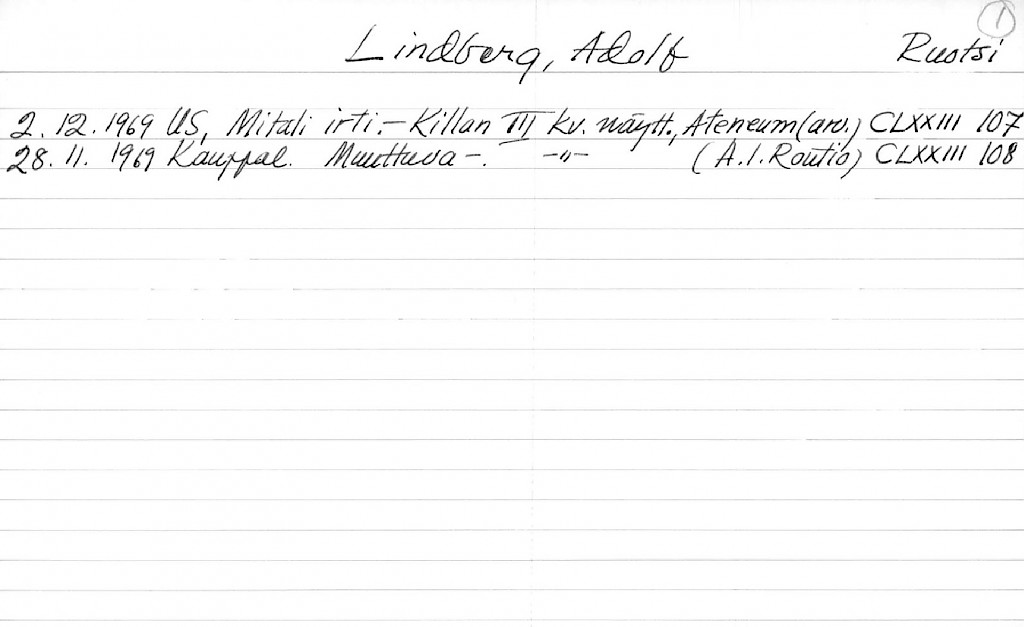 1
Lindberg, Adolf Ruotsi
2.12.1969 US, Mitali irti. – Killan III kv. näytt., Ateneum (arv.) CLXXIII 107
28.11.1969 Kauppal. Muuttuva –. –"– (A.I. Routio) CLXXIII 108